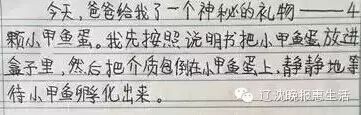 今天,爸爸给我了一个神秘的礼物——4
颗小甲鱼蛋。我先按照说明书把小甲鱼蛋放进
盒子里,然后把介质包倒在小甲鱼蛋上,静静地等
待小甲鱼卵孚化出来。
辽沈晚报惠生活